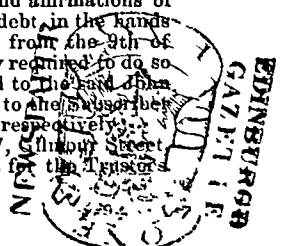 and affirmations of
debt, in the hands
from the 9th of
required to do so
to the said John
to the Subscriber
respectively.
Gilmour Street,
for the Trustees
EDINBURGH
GAZETTE